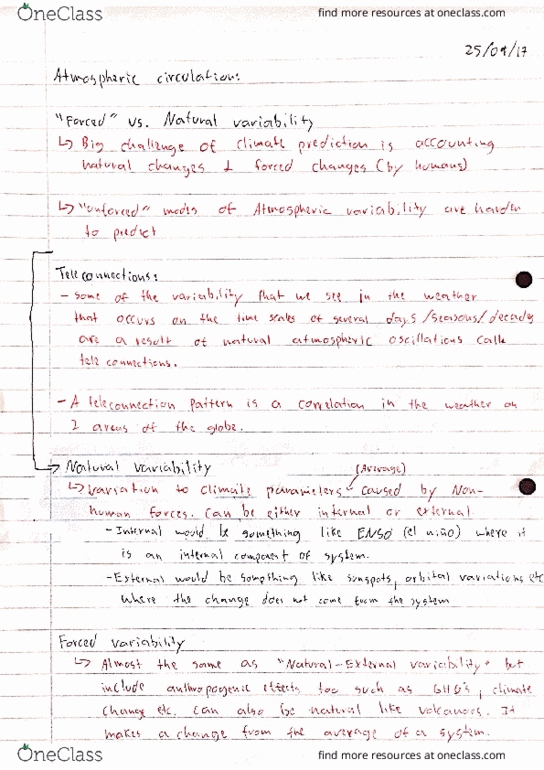 OneClass
find more resources at oneclass.com
25/09/17
Atmospheric circulation:
"Forced" vs. Natural variability
↳ Big challenge of climate prediction is accounting
natural changes & forced changes (by humans)
↳ "unforced" modes of Atmospheric variability are harder
to predict
Teleconnections:
- some of the variability that we see in the weather
that occurs on the time scales of several days/seasons/decades
are a result of natural atmospheric oscillations calle
tele connections.
- A teleconnection pattern is a correlation in the weather on
2 areas of the globe.
→ Natural variability
(Average)
↳ variation to climate parameters caused by Non-
human forces. Can be either internal or external.
- Internal would be something like ENSO (el niño) where it
is an internal component of system.
- External would be something like sunspots, orbital variations etc
where the change does not come from the system
Forced variability
↳ Almost the same as "Natural-External variability" but
include anthropogenic effects too such as GHG's, climate
change etc. can also be natural like volcanoes. It
makes a change from the average of a system.
OneClass
find more resources at oneclass.com